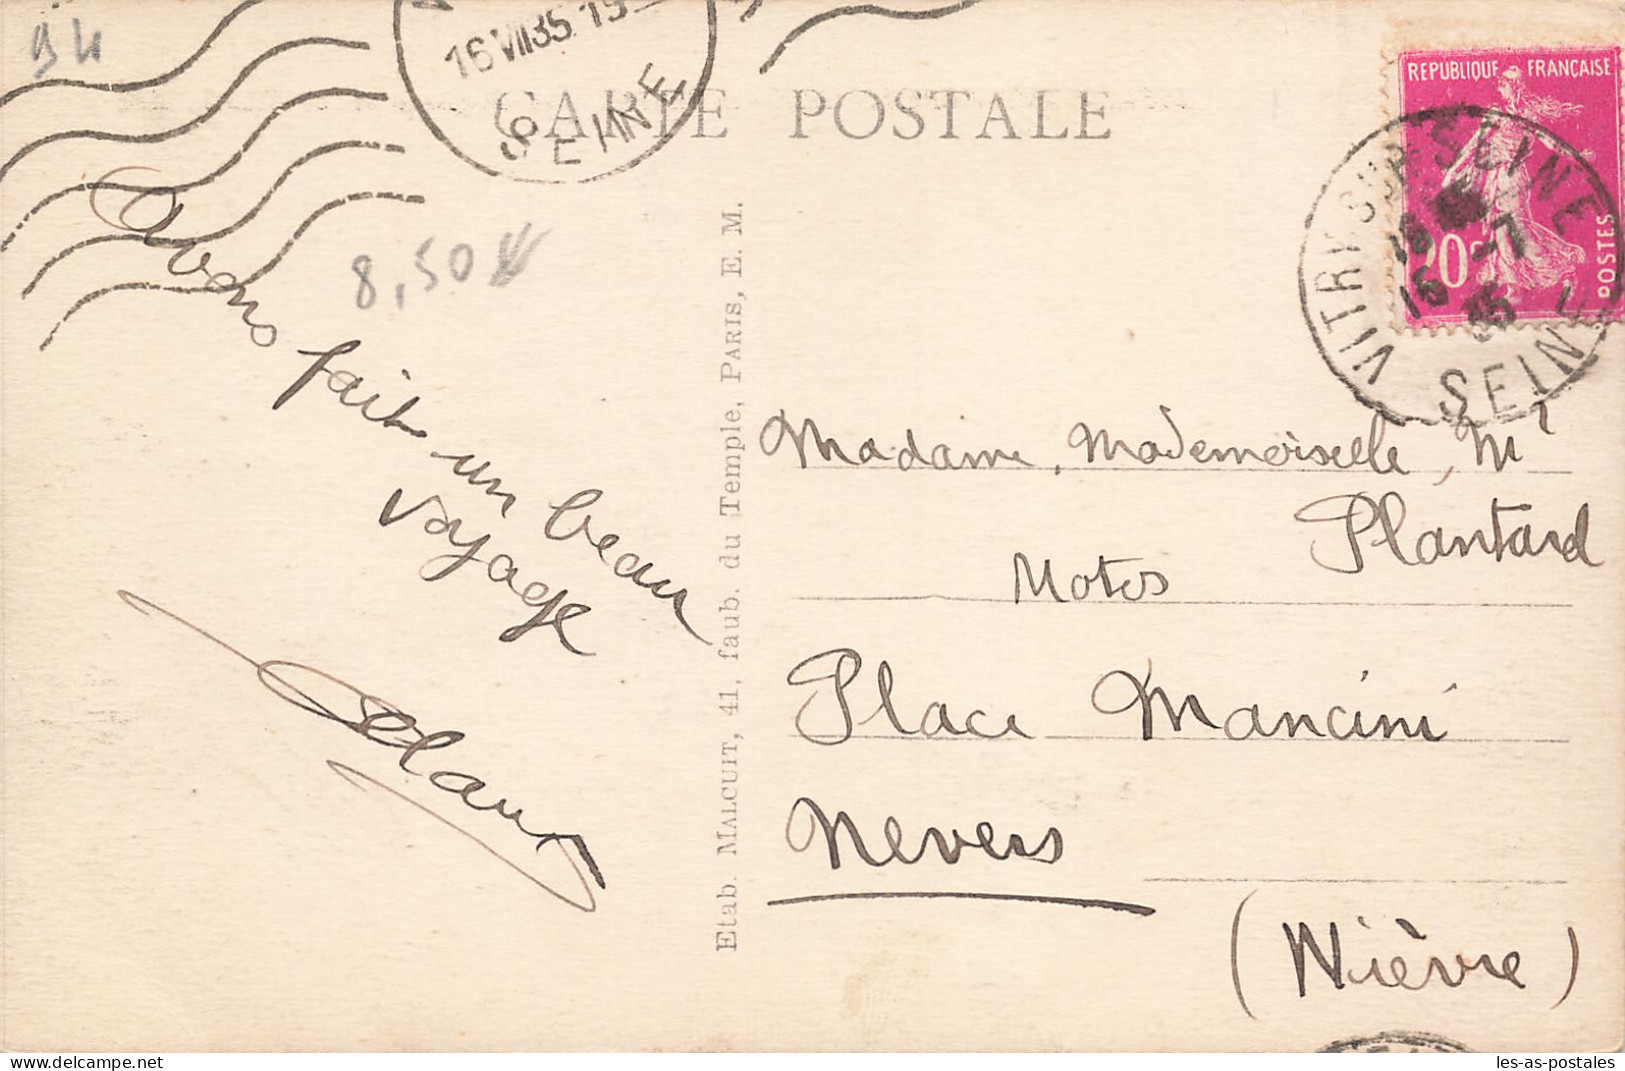 94
16 VII 35 19
SEINE
CARTE POSTALE
REPUBLIQUE FRANÇAISE
20c
POSTES
VITRY SUR SEINE
16 -7
15 35
SEINE
8,50
Avons fait un beau
voyage
Etab. MALCUIT, 41, faub. du Temple, PARIS, E. M.
Madame, Mademoiselle, Mr
Plantard
Place Mancini
Nevers
(Nièvre)
les-as-postales